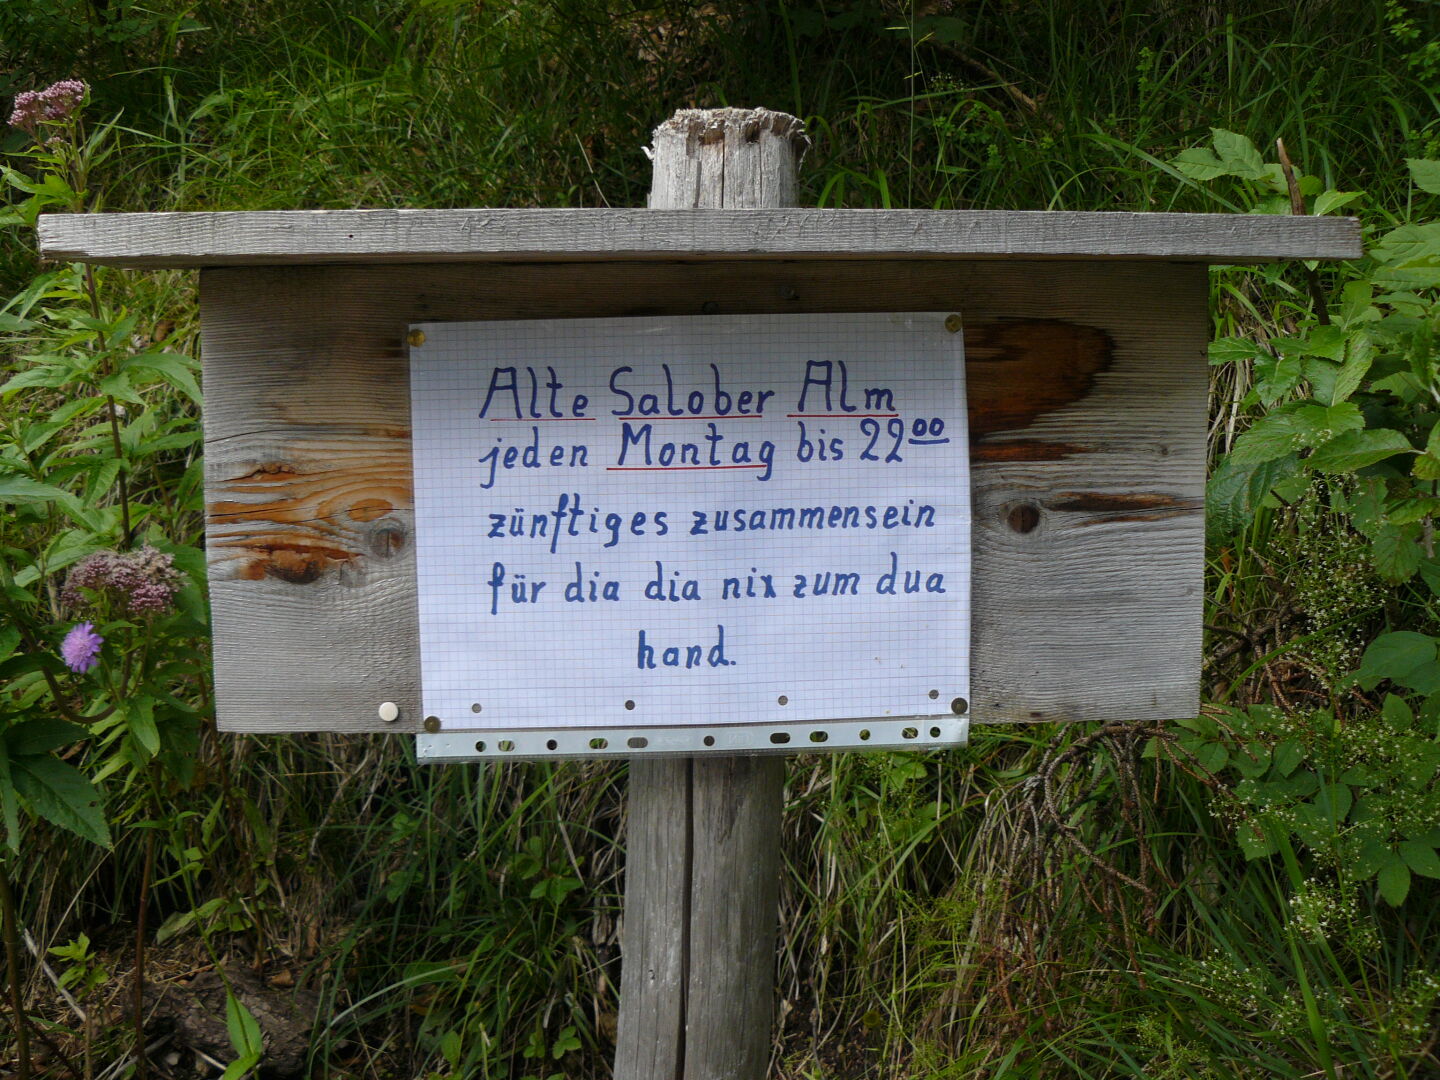 Alte Salober Alm
jeden Montag bis 22⁰⁰
zünftiges zusammensein
für dia dia nix zum dua
hand.